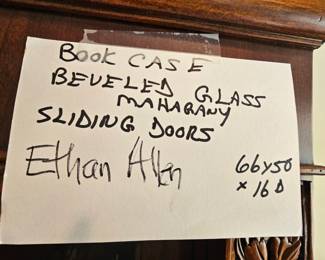 BOOK CASE
BEVELED GLASS
MAHAGANY
SLIDING DOORS
Ethan Allen
66x50
x 16 D